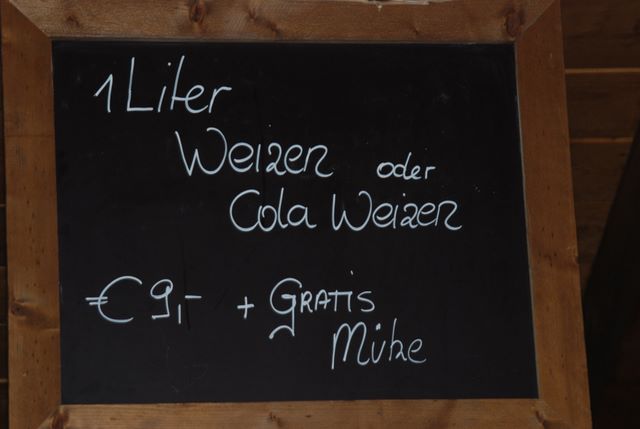 1 Liter
Weizen oder
Cola Weizen
€ 9,- + GRATIS
Mütze